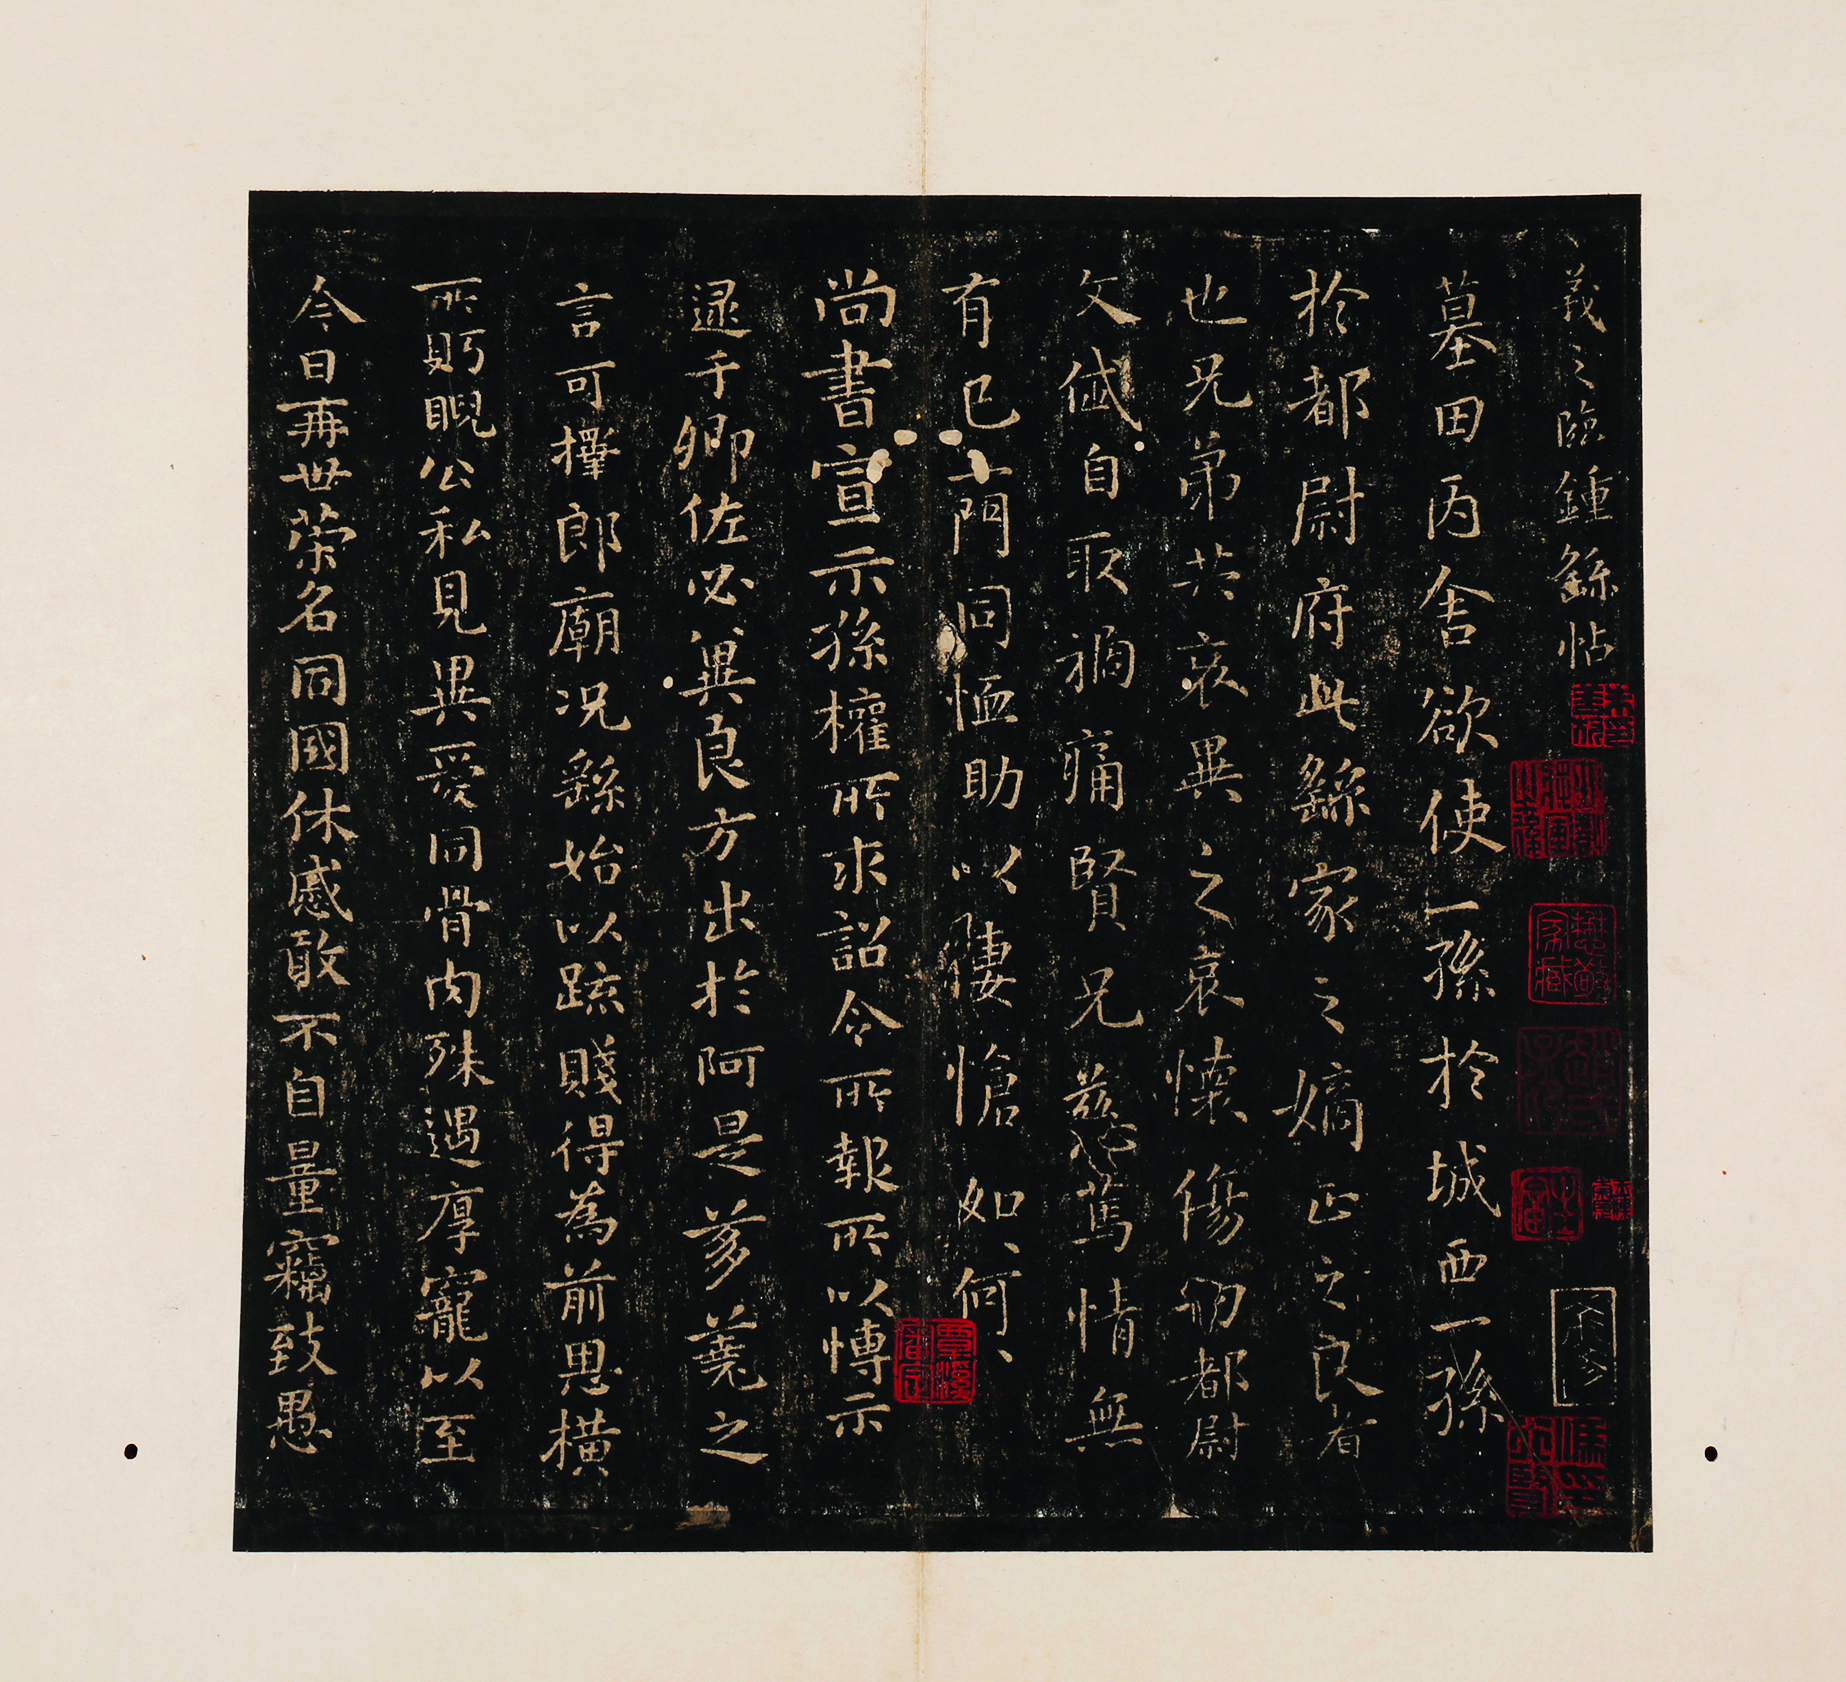 羲之臨鍾繇帖
墓田丙舍欲使一孫於城西一孫
於都尉府此繇家之嫡正之良者
也兄弟共哀異之哀懷傷切都尉
文岱自取禍痛賢兄慈篤情無
有已一門同恤助以悽愴如、何、
尚書宣示孫權所求詔令所報所以博示
逮于卿佐必冀良方出於阿是芻蕘之
言可擇郎廟况繇始以疏賤得為前恩橫
所眄睨公私見異愛同骨肉殊遇厚寵以至
今日再世榮名同國休慼敢不自量竊致愚
覃溪審定